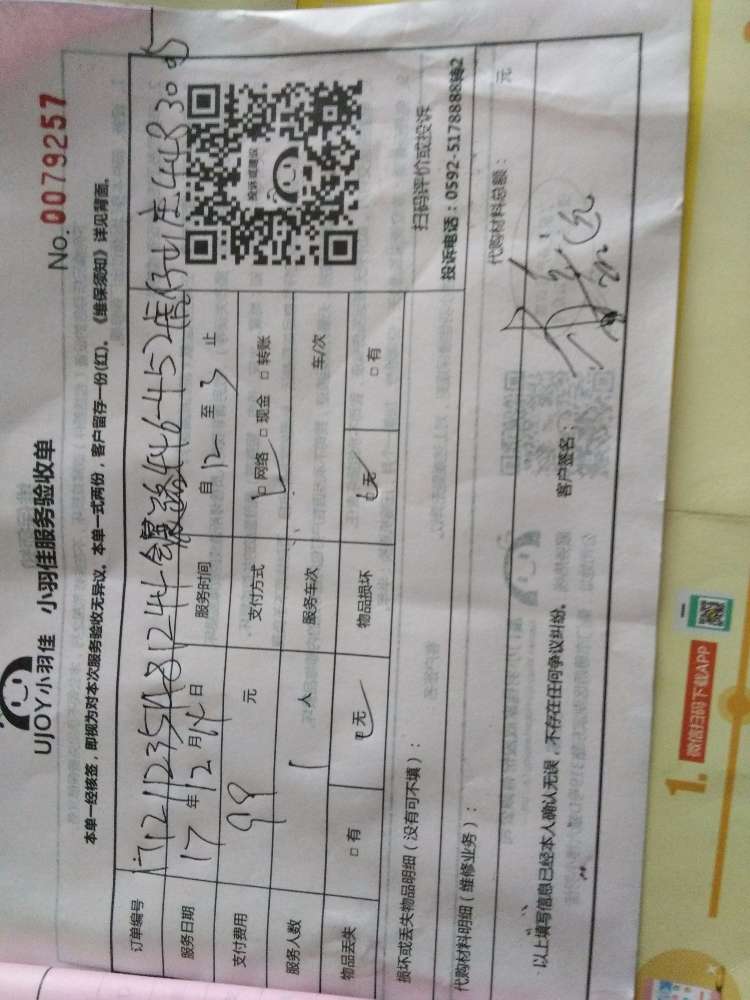 UJOY小羽佳 小羽佳服务验收单
No. 0079257
本单一经核签，即视为对本次服务验收无异议。本单一式两份，客户留存一份(红)。《维保须知》详见背面。
订单编号
服务日期 17 年 12 月 14 日 服务时间 自 12 至 3 止
支付费用 99 元 支付方式 网络 □ 现金 □ 转账
服务人数 1 人 服务车次 车/次
物品丢失 □ 有 无 物品损坏 无 □ 有
投诉或建议
扫码评价或投诉
投诉电话：0592-5178888转2
损坏或丢失物品明细（没有可不填）：
代购材料明细（维修业务）：
代购材料总额： 元
以上填写信息已经本人确认无误，不存在任何争议纠纷。
客户签名：
1. 微信扫码下载APP